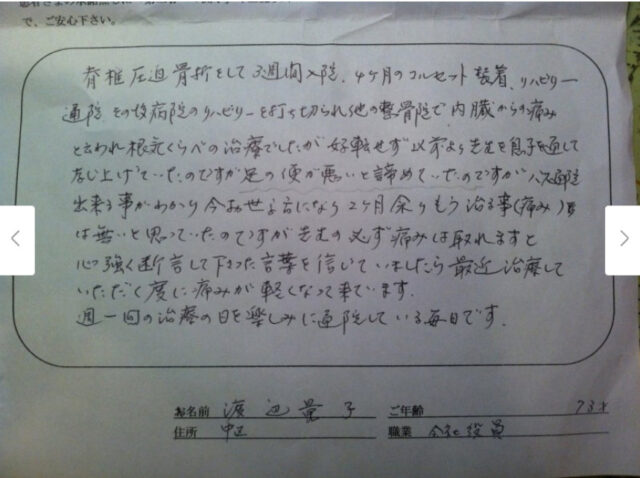 で、ご安心下さい。
脊椎圧迫骨折をして3週間入院、4ヶ月のコルセット装着、リハビリー
通院 その後病院のリハビリーを打ち切られ他の整骨院で内臓からの痛み
と云われ根元くらべの治療でしたが好転せず 以前より先生を息子を通して
存じ上げていたのですが足の便が悪いと諦めていたのですがバス通院
出来る事がわかり今お世話になり2ヶ月余りもう治る事(痛み)
は無いと思っていたのですが先生の必ず痛みは取れますと
心強く断言して下さった言葉を信じていましたら最近治療して
いただく度に痛みが軽くなって来ています。
週一回の治療の日を楽しみに通院している毎日です。
お名前 渡辺 子 ご年齢 73才
住所 中区 職業 会社役員